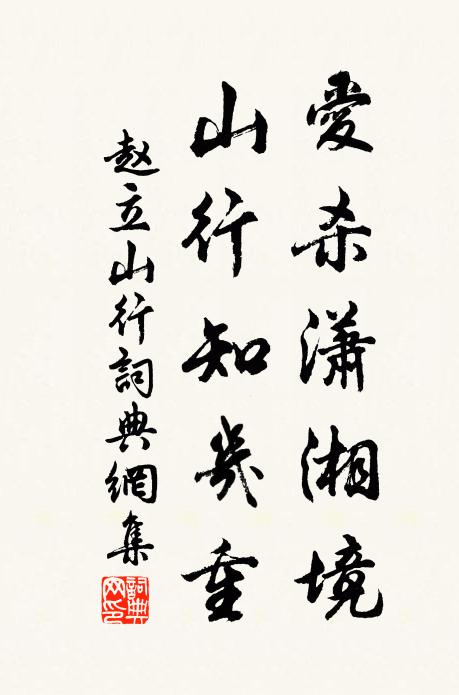 愛杀瀟湘境
山行知幾重
赵立山行詞典網集
詞典網印